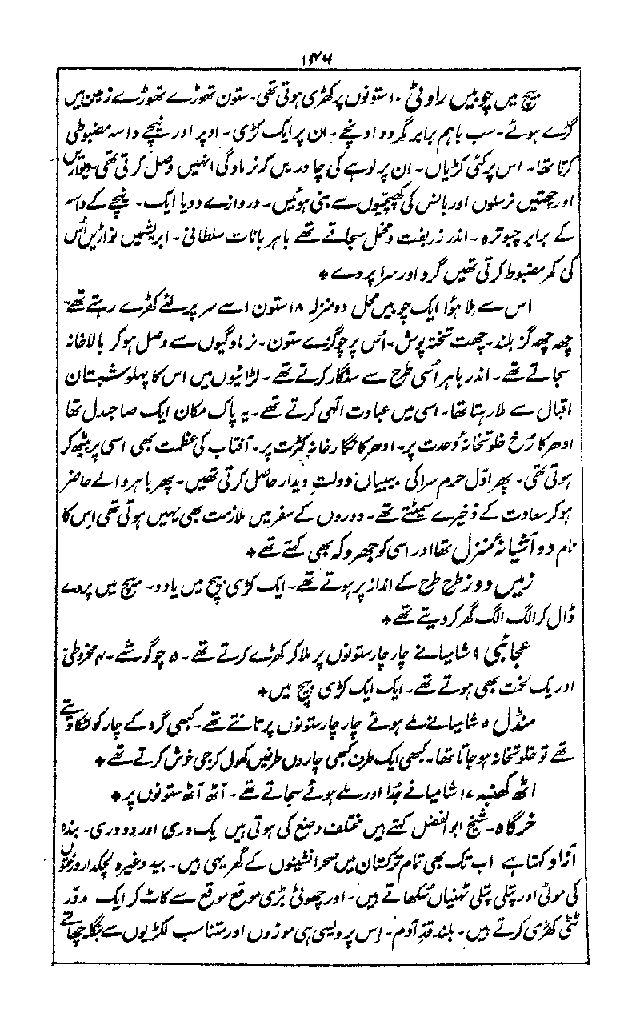 ۱۴۶
بیچ میں چوبیں راوٹی۔ ۱۰ ستونوں پر کھڑی ہوتی تھی۔ ستون تھوڑے تھوڑے زمین میں
گڑے ہوئے۔ سب باہم برابر مگر دو اونچے۔ ان پر ایک کڑی۔ اوپر اور نیچے داسہ مضبوطی
کرتا تھا۔ اس پر کئی کڑیاں۔ ان پر لوہے کی چادریں کہ نر مادگی انہیں وصل کرتی تھی۔ دیواریں
اور چھتیں نرسلوں اور بانس کی کھپچیوں سے بنی ہوئیں۔ دروازے دو یا ایک۔ نیچے کے داسہ
کے برابر چبوترہ۔ اندر زربفت و مخمل سجاتے تھے باہر بانات سلطانی۔ ابریشمیں نواڑیں اُس
کی کمر مضبوط کرتی تھیں گرد اور سراپردے ٭
اس سے ملا ہوا ایک چوبیں محل دو منزلہ ۱۸ ستون اسے سر پر لئے کھڑے رہتے تھے
چھ چھ گز بلند۔ چھت تختہ پوش۔ اُس پر چوگزے ستون۔ نر مادگیوں سے وصل ہو کر بالاخانہ
سجاتے تھے۔ اندر باہر اُسی طرح سے سنگار کرتے تھے۔ لڑائیوں میں اس کا پہلو شبستان
اقبال سے ملا رہتا تھا۔ اسی میں عبادت الٰہی کرتے تھے۔ یہ پاک مکان ایک صاحبدل تھا
ادھر کا رخ خلوتخانۂ وحدت پر۔ ادھر کا نگارخانۂ کثرت پر۔ آفتاب کی عظمت بھی اسی پر بیٹھ کر
ہوتی تھی۔ پھر اوّل حرم سرا کی بیبیاں دولتِ دیدار حاصل کرتی تھیں۔ پھر باہر والے حاضر
ہو کر سعادت کے ذخیرے سمیٹتے تھے۔ دوروں کے سفر میں ملازمت بھی یہیں ہوتی تھی اس کا
نام دو آشیانہ منزل تھا اور اسی کو جھروکہ بھی کہتے تھے ٭
زمیں دوز طرح طرح کے انداز پر ہوتے تھے۔ ایک کڑی بیچ میں یا دو۔ بیچ میں پردے
ڈال کر الگ الگ گھر کر دیتے تھے ٭
عجائبی ۹ شامیانے چار چار ستونوں پر ملا کر کھڑے کرتے تھے۔ ۵ چوگوشے۔ ۴ مخروطی
اور یک لخت بھی ہوتے تھے۔ ایک ایک کڑی بیچ میں ٭
منڈل ۵ شامیانے ملے ہوئے چار چار ستونوں پر تانتے تھے۔ کبھی گرد کے چار کو لٹکا دیتے
تھے تو خلوتخانہ ہو جاتا تھا۔ کبھی ایک طرف کبھی چاروں طرفیں کھول کر جی خوش کرتے تھے ٭
اٹھ کھنبہ ۱۷ شامیانے جدا اور ملے ہوئے سجاتے تھے۔ آٹھ آٹھ ستونوں پر ٭
خرگاہ ۵۔ شیخ ابوالفضل کہتے ہیں مختلف وضع کی ہوتی ہیں یک دری اور دو دری۔ بندہ
آزاد کہتا ہے اب تک بھی تمام ترکستان میں صحرا نشینوں کے گھر یہی ہیں۔ بید وغیرہ لچکدار درختوں
کی موٹی اور پتلی پتلی ٹہنیاں سُکھاتے ہیں۔ اور چھوٹی بڑی موقع موقع سے کاٹ کر ایک مدوّر
ٹٹی کھڑی کرتے ہیں۔ بلند قدِ آدم۔ اس پر ویسی ہی موزوں اور متناسب لکڑیوں سے بنگلہ چھاتے